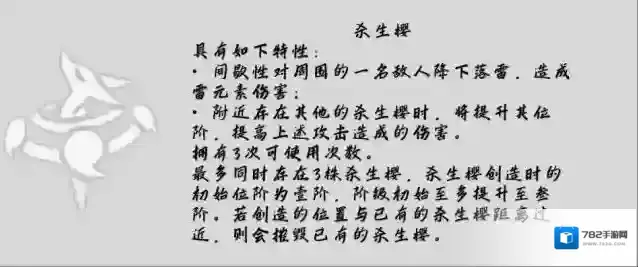 杀生樱
具有如下特性：
· 间歇性对周围的一名敌人降下落雷，造成
雷元素伤害；
· 附近存在其他的杀生樱时，将提升其位
阶，提高上述攻击造成的伤害。
拥有3次可使用次数。
最多同时存在3株杀生樱，杀生樱创造时的
初始位阶为壹阶，阶级初始至多提升至叁
阶。若创造的位置与已有的杀生樱距离过
近，则会摧毁已有的杀生樱。
782手游网